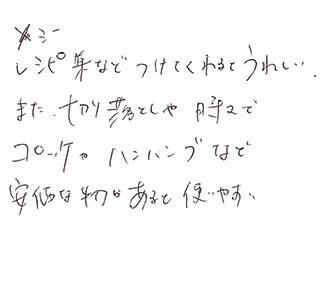 レシピ集など つけてくれるとうれしい.
また、切り落としや 豚こまで
コロッケや ハンバーグなど
安価な物があると 使いやすい